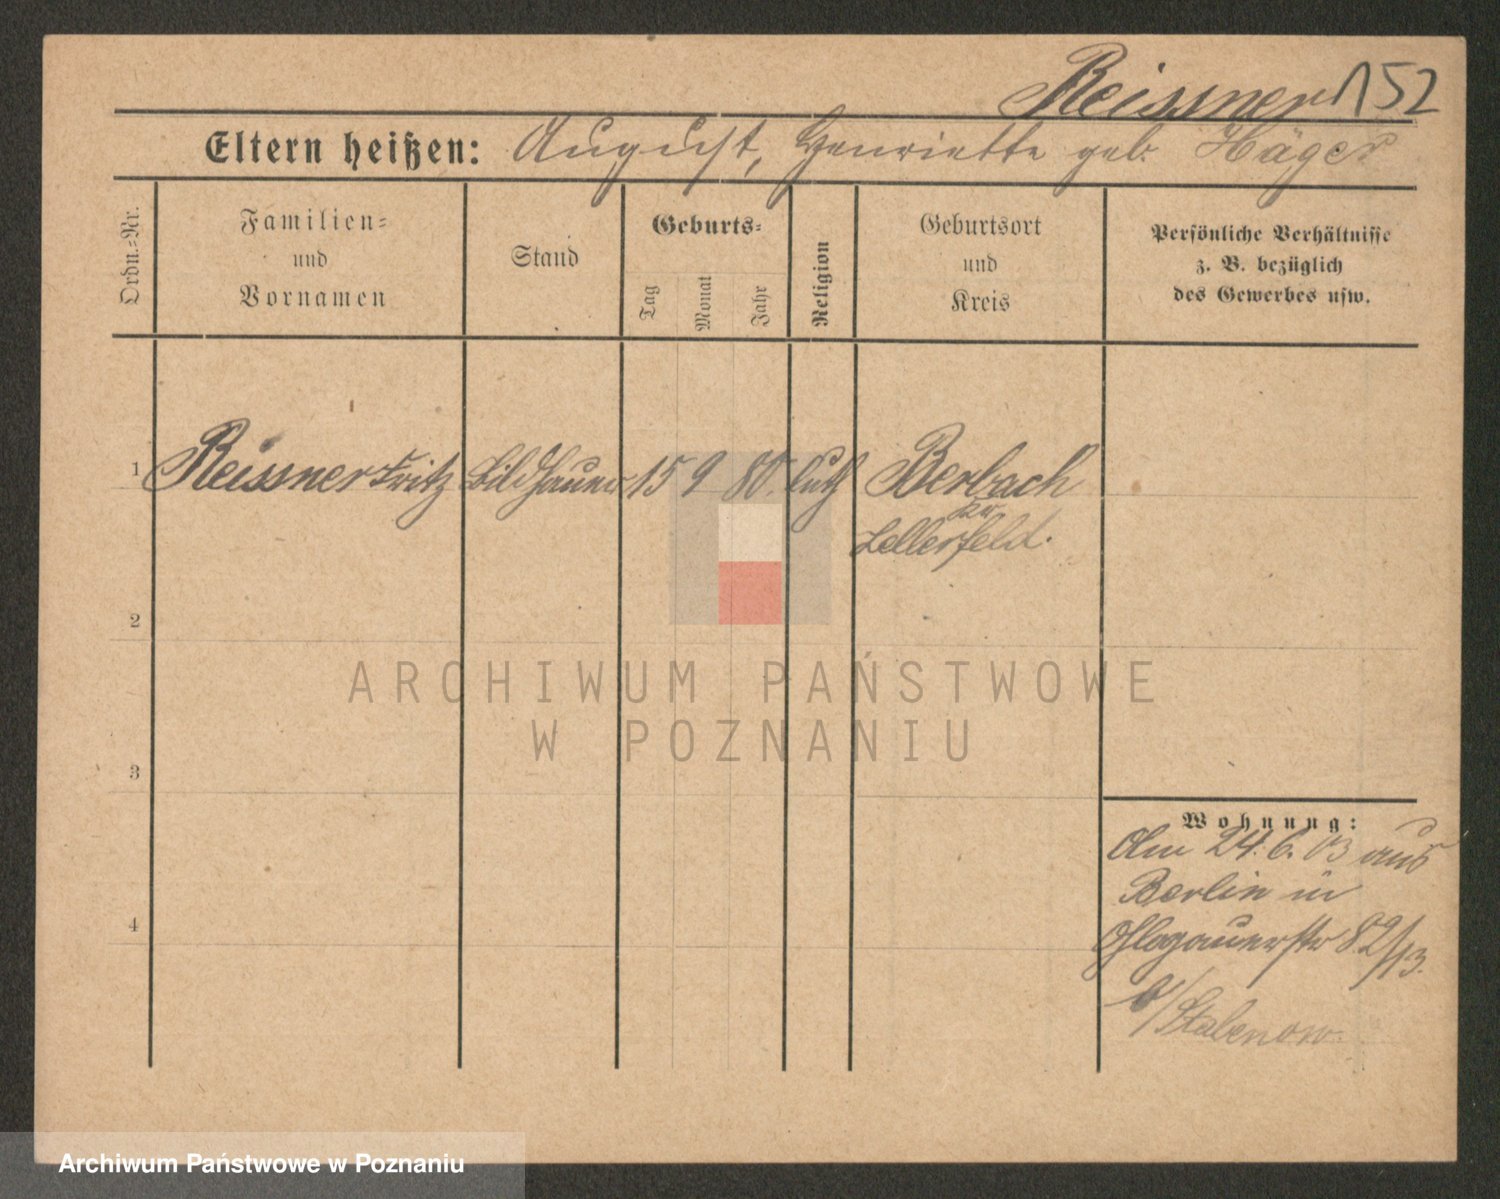 Reissner 152
Eltern heißen: August, Henriette geb. Häger
Ordn.-Nr.
Familien-
und
Vornamen
Stand
Geburts-
Tag
Monat
Jahr
Religion
Geburtsort
und
Kreis
Persönliche Verhältnisse
z. B. bezüglich
des Gewerbes usw.
1 Reissner Fritz Bildhauer 15 9 80. luth Berbach
Kr
Zellerfeld.
2
3
4
Wohnung:
Am 24.6.03 aus
Berlin in
Glogauerstr 82/13.
b/Stabenow.
ARCHIWUM PAŃSTWOWE
W POZNANIU
Archiwum Państwowe w Poznaniu